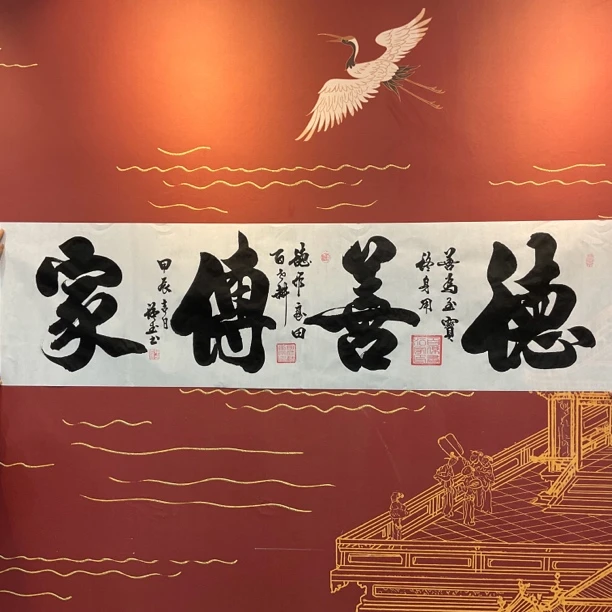 德
善為至寶
終身用
善
作良田
百世耕
傳
甲辰月
玉书
家